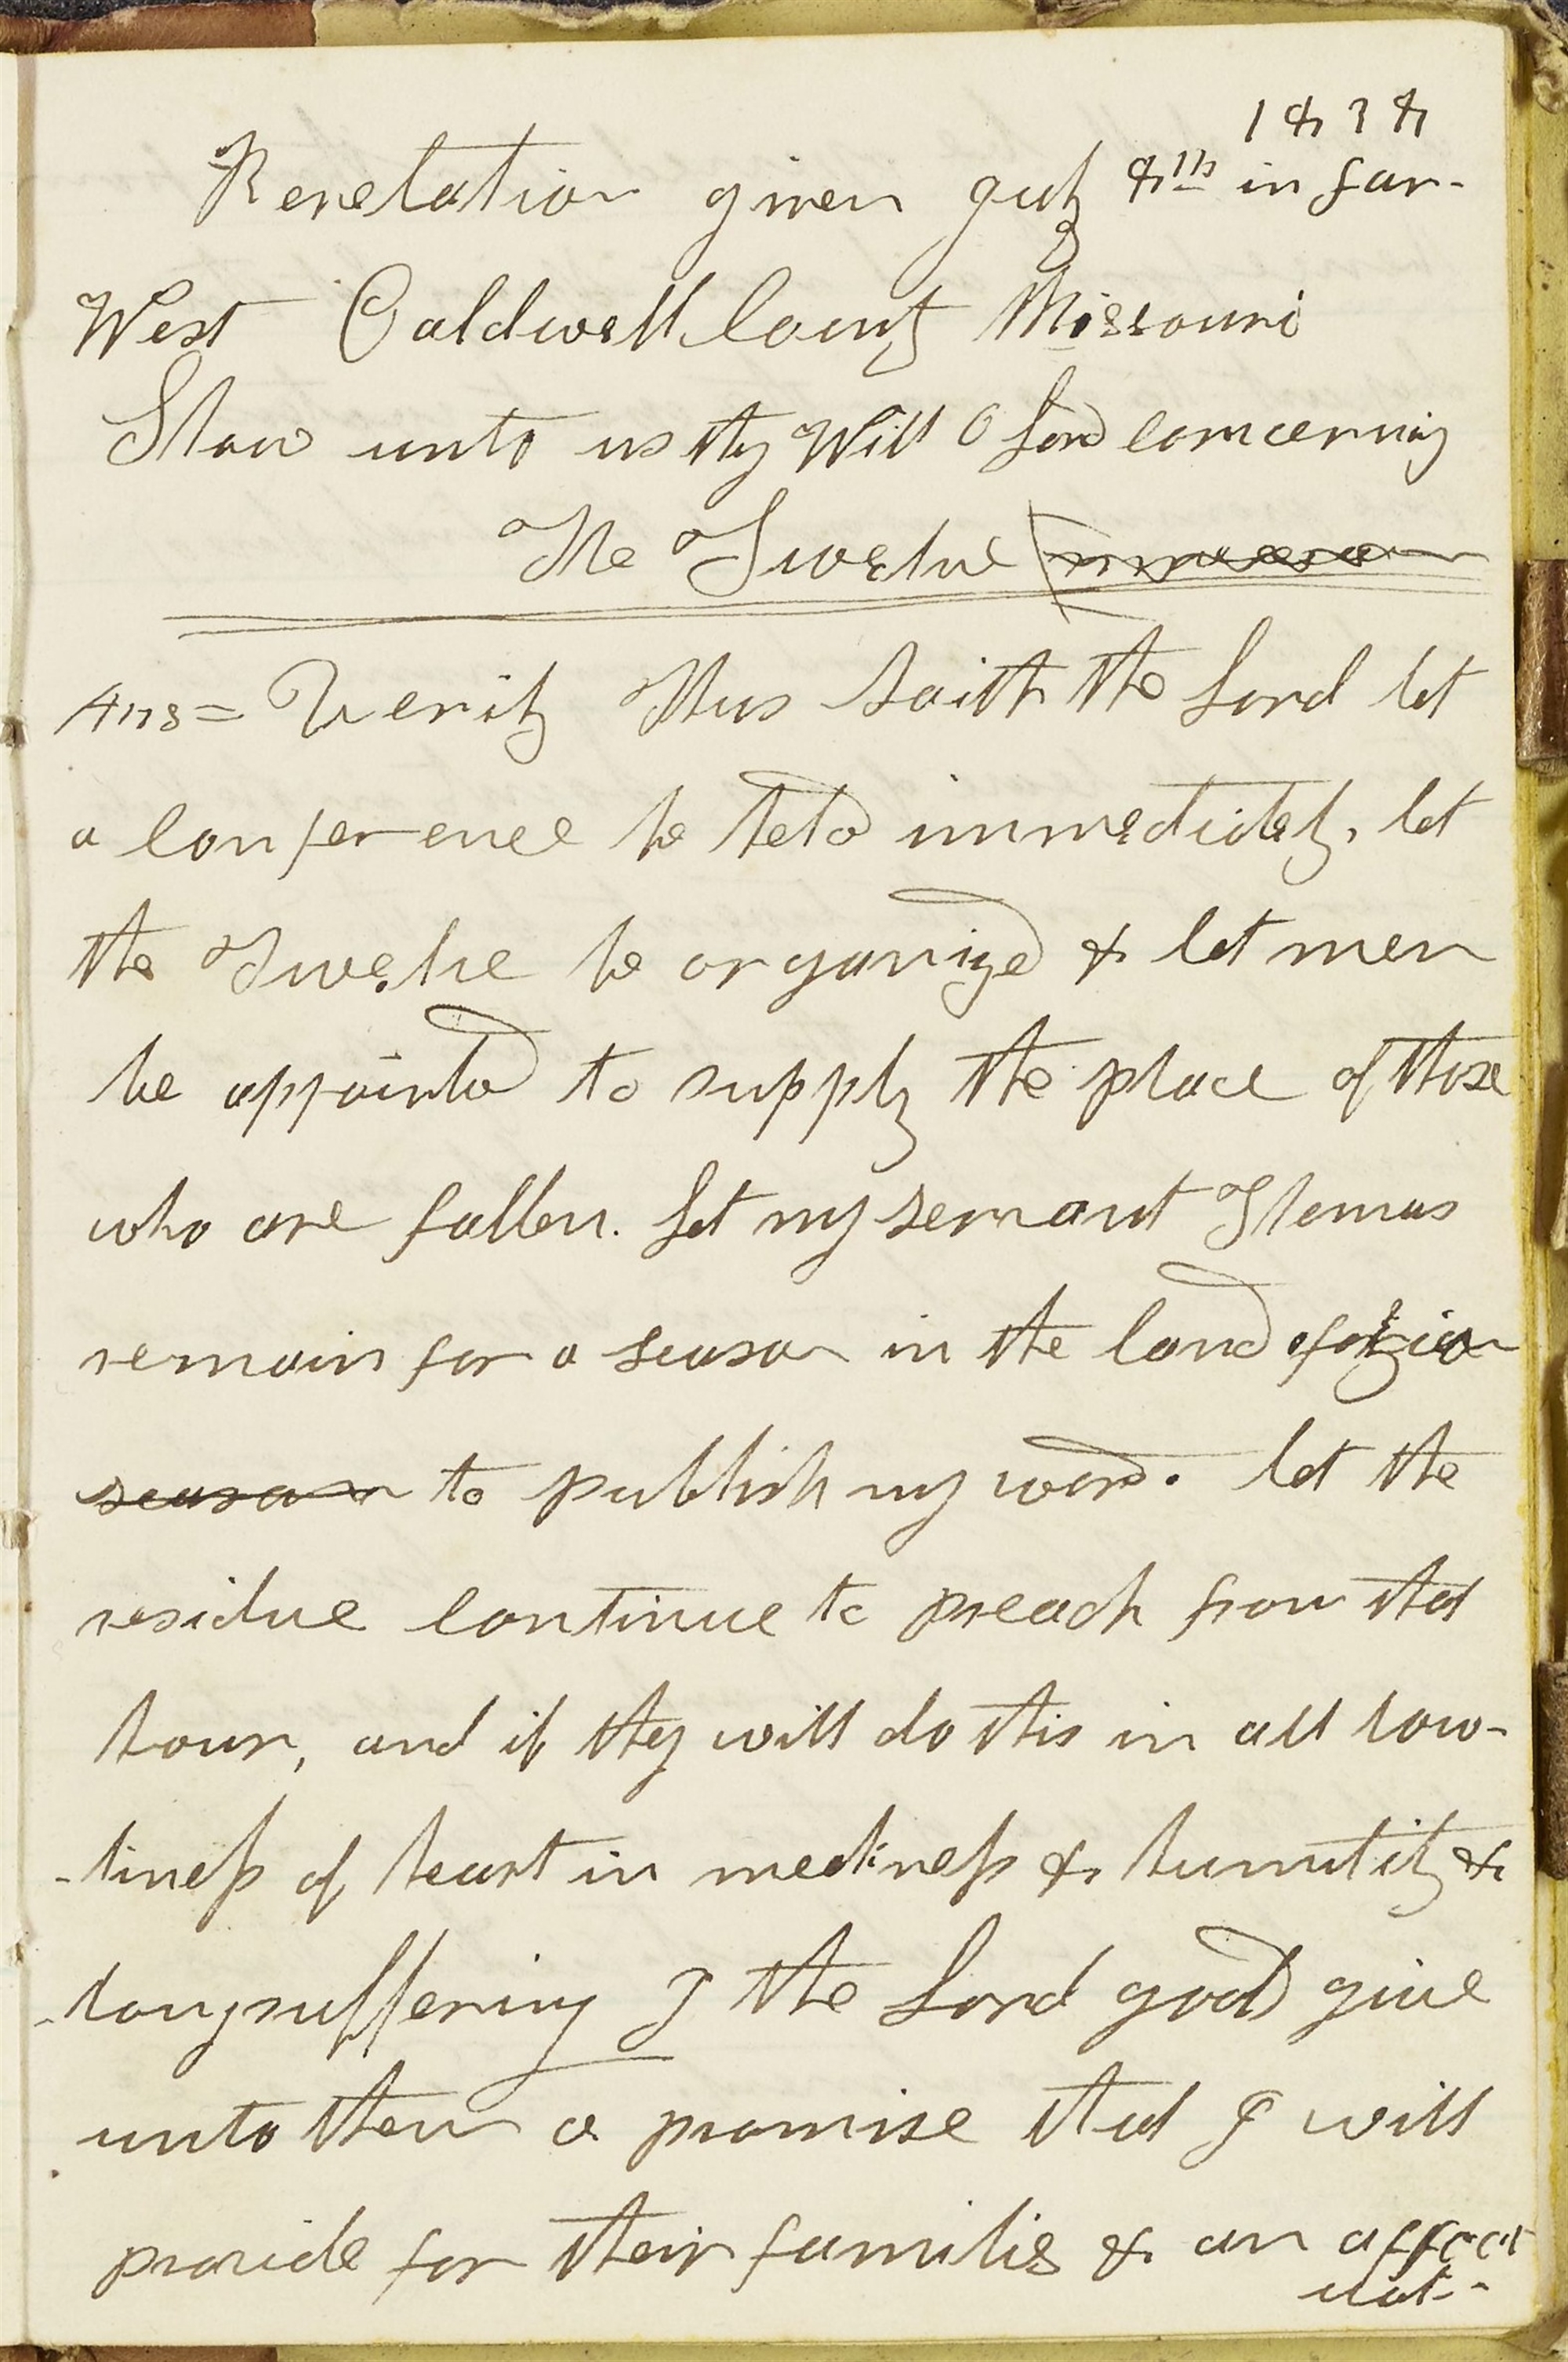 1838
Revelation given july 8th in far-
West Caldwell County Missouri
Show unto us thy Will O Lord concerning
The Twelve
Ans= Verily Thus saith the Lord let
a conference be held immediately, let
the Twelve be organized & let men
be appointed to supply the place of those
who are fallen. Let my servant Thomas
remain for a season in the land of zion
season to publish my word. let the
residue continue to preach from that
hour, and if they will do this in all low-
-liness of heart in meekness & humility &
longsuffering I the Lord god give
unto them a promise that I will
provide for their families & an affect
uat-